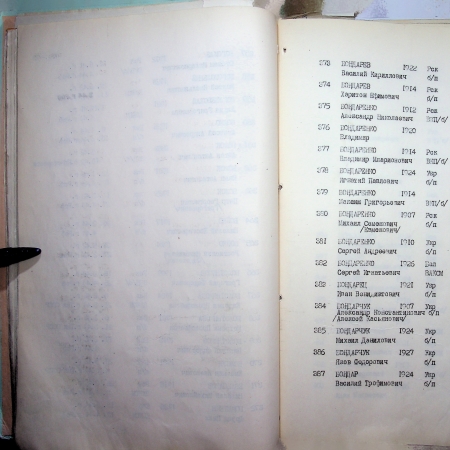 373 БОНДАРЕВ 1922 Рск
Василий Кириллович б/п
374 БОНДАРЕВ 1914 Рск
Харитон Ефимович б/п
375 БОНДАРЕНКО 1912 Рск
Александр Николаевич ВКП/б/
376 БОНДАРЕНКО 1920
Владимир
377 БОНДАРЕНКО 1914 Рск
Владимир Илларионович ВКП/б/
378 БОНДАРЕНКО 1924 Укр
Евгений Павлович б/п
379 БОНДАРЕНКО 1914
Максим Григорьевич ВКП/б/
380 БОНДАРЕНКО 1907 Рск
Михаил Семенович б/п
381 БОНДАРЕНКО 1910 Укр
Сергей Андреевич б/п
382 БОНДАРЕНКО 1926
Сергей Игнатьевич ВЛКСМ
383 БОНДАРЕЦ 1921 Укр
Иван Бенидиктович б/п
384 БОНДАРЧУК 1907 Укр
Александр Константинович б/п
/Алексей Касьянович/
385 БОНДАРЧУК 1924 Укр
Михаил Данилович б/п
386 БОНДАРЧУК 1927 Укр
Яков Федорович б/п
387 БОНДАР 1924 Укр
Василий Трофимович б/п